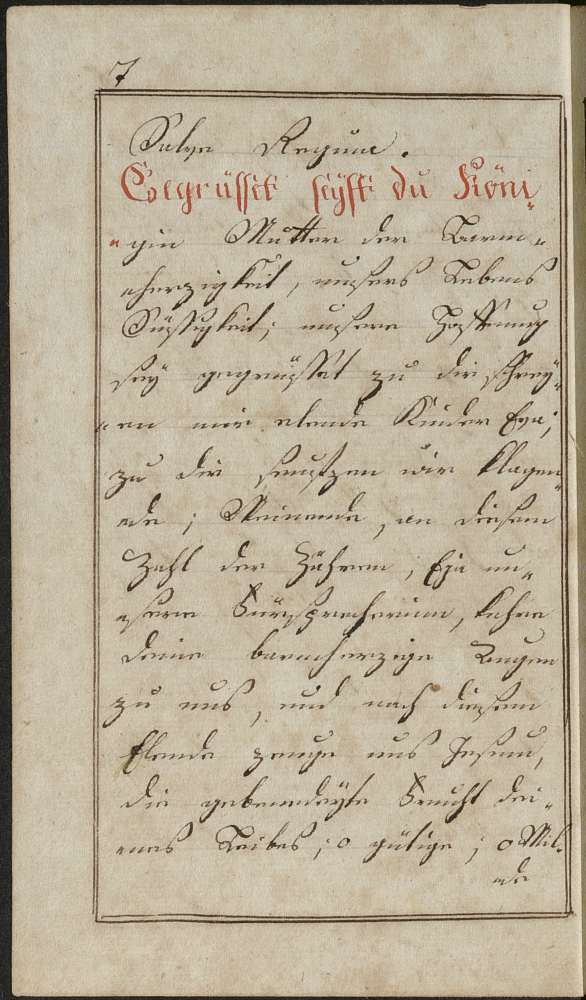 7
Salve Regina.
Gegrüsset seÿst du Köni„
„gin Mutter der Barm„
„herzigkeit, unsers Lebens
Süssigkeit; unsere Hoffnung
seÿ gegrüsset zu dir schreÿ„
„en wir elende Kinder Eva;
zu dir seufzen wir klagen„
„de; Weinende, in diesem
Zahl der Zähren, Eja un„
„sere Fürsprecherinn, kehre
deine barmherzige Augen
zu uns, und nach diesem
Elende zeuge uns Jesum,
die gebenedeÿte Frucht dei„
„nes Leibes; o gütige; o Mil„
„de